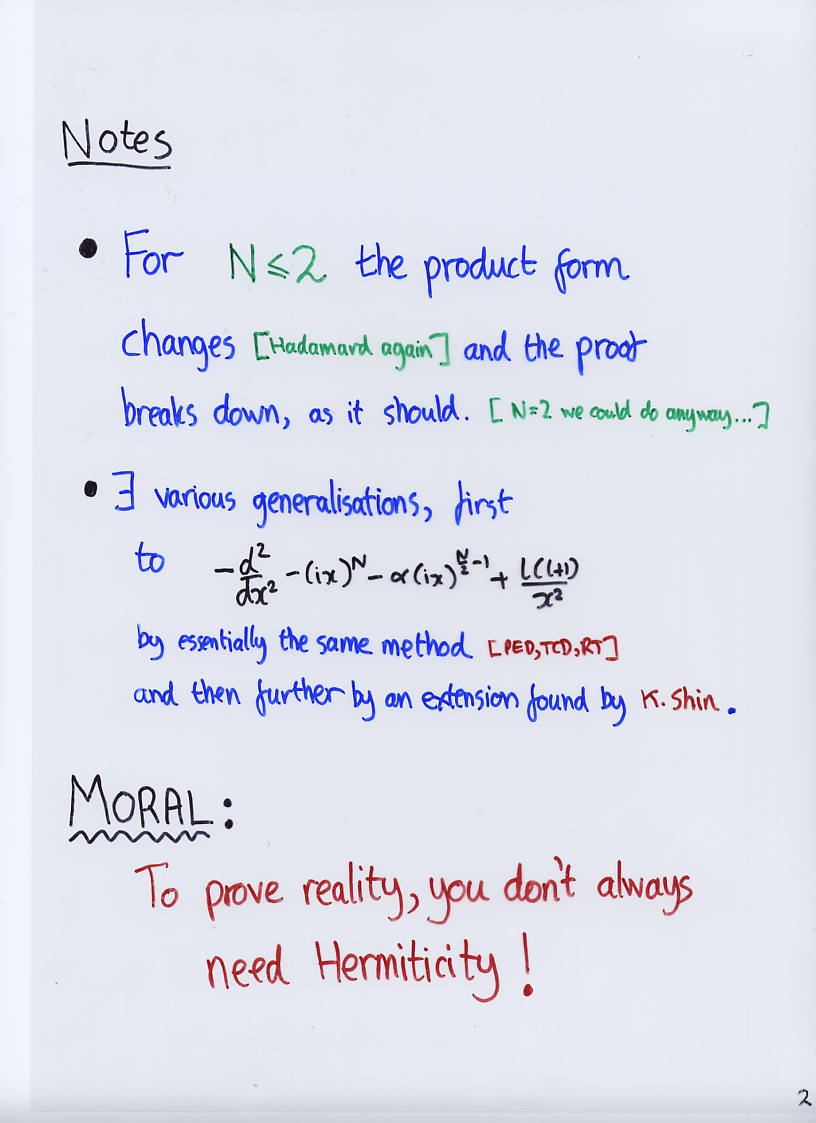 Notes
• For N ⩽ 2 the product form
changes [Hadamard again] and the proof
breaks down, as it should. [N=2 we could do anyway...]
• ∃ various generalisations, first
to -d²/dx² - (ix)^N - α(ix)^(N/2 -1) + l(l+1)/x²
by essentially the same method [PED,TCD,RT]
and then further by an extension found by K. Shin.
MORAL:
To prove reality, you don't always
need Hermiticity!
2